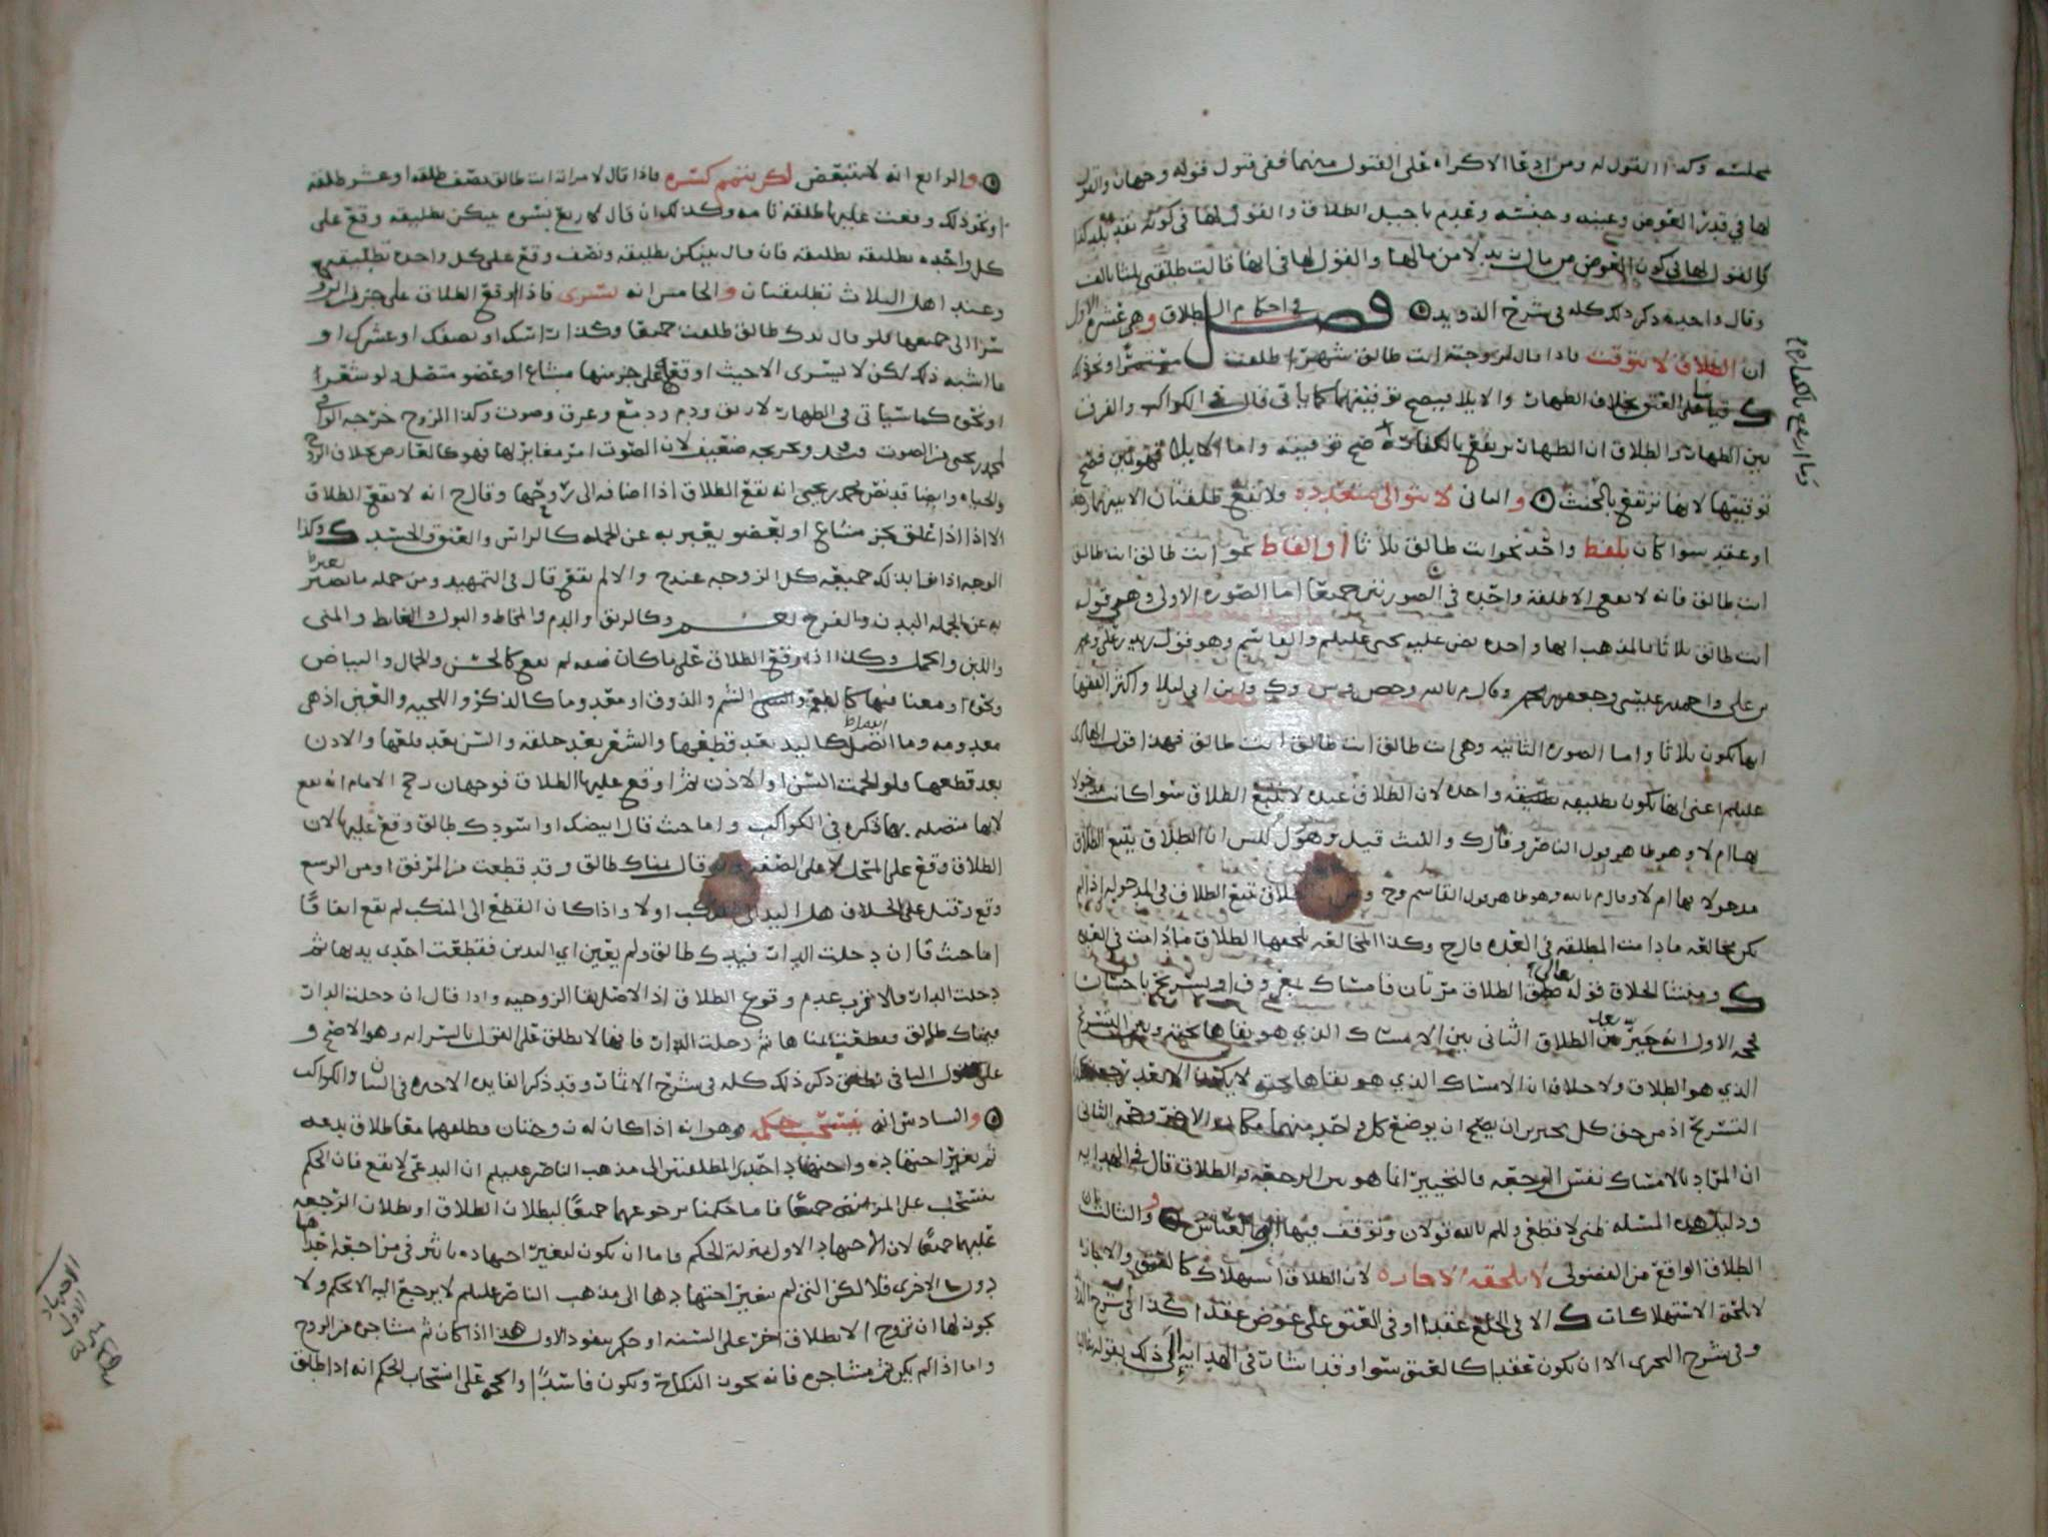 مجلسه وكذا القول له ومن ادعا الاكراه على القبول منهما ففي قبول قوله وجهان والقول
لها في قدر العوض وعينه وجنسه وعدم تاجيل الطلاق والقول لها في كونه نقد بلد كذا
كالقول لها في كون العوض من مال زيد لا من مالها والقول لها في انها قالت طلقني ثلثا بالف
وقال واحدة ذكر ذلك كله في شرح الذويد فصل في احكام الطلاق وهي عشرة الاول
ان الطلاق لا يتوقت فاذا قال لزوجته انت طالق شهرا طلقت مستمرا ونحو ذلك
قياسا على العتق بخلاف الظهار والايلا فيصح توقيتهما كما ياتي قال في الكواكب والفرق
بين الظهار والطلاق ان الظهار يرتفع بالكفارة صح توقيته واما الايلا فهو يمين فصح
توقيتها لانها ترتفع بالحنث والثاني لا يتوالى متعدده فلا يقع طلقتان الا بينهما رجعة
او عقد سوا كان بلفظ واحد نحو انت طالق ثلاثا او الفاظ نحو انت طالق انت طالق
انت طالق فانه لا يقع الا طلقة واحده في الصورتين جميعا اما الصورة الاولى وهي قوله
انت طالق ثلاثا فالمذهب انها واحده نص عليه يحيى عليلم والقاسم وهو قول زيد بن علي ومحمد
بن علي واحمد بن عيسى وجعفر بن محمد وقال م بالله وحص وش وك وابن ابي ليلا واكثر الفقها
انها تكون ثلاثا واما الصورة الثانية وهي انت طالق انت طالق انت طالق فهذا قول الهادي
عليلم اعني انها تكون تطليقة واحده لان الطلاق عنده لا يتبع الطلاق سوا كانت مدخولا
بها ام لا وهو ظاهر قول الناصر وقال ك والليث قيل وهو قول ان الطلاق يتبع الطلاق
مدخولا بها ام لا وقال م بالله وهو ظاهر قول القاسم وح الطلاق يتبع الطلاق في المدخولة اذا لم
تكن مخالعه ما دامت المطلقه في العدة قال ح وكذا المخالعه يلحقها الطلاق ما دامت في العده
ومنشا الخلاف قوله تعالى الطلاق مرتان فامساك بمعروف او تسريح باحسان
حجه الاول انه خير بعد الطلاق الثاني بين الامساك الذي هو بقاها تحته وبين التسريح
الذي هو الطلاق ولا خلاف ان الامساك الذي هو بقاها تحته لا يكون الا بعد رجعة
التسريح اذ من حق كل مخيرين ان يصح ان يوضع كل واحد منهما مكان الاخر وحجه الثاني
ان المراد بالامساك نفس الرجعه فالتخيير انما هو بين الرجعة والطلاق قال في الهدايه
ودليل هذه المسئله ظني لا قطعي وللم بالله قولان وتوقف فيها ابو العباس والثالث ان
الطلاق الواقع من الفضولي لا تلحقه الاجازه لان الطلاق استهلاك كالعتق والاجازة
لا تلحق الاستهلاكات الا في الخلع عقدا او في العتق على عوض عقدا كذا في شرح
وفي شرح البحري الا ان يكون عقدا كالعتق سوا وقد اشار في الهداية الى ذلك بقوله غالبا
وما ارتفع بالكفارة
والرابع انه لا يتبعض لكن يتمم كسره فاذا قال لامراته انت طالق نصف طلقه او عشر طلقه
او نحو ذلك وقعت عليها طلقه تامه وكذلك ان قال لاربع نسوه بينكن تطليقه وقع على
كل واحده تطليقه تطليقه فان قال بينكن تطليقه ونصف وقع على كل واحده تطليقه
وعند اهل الثلاث تطليقتان والخامس انه يسري فاذا اوقع الطلاق على جزء من الزوجة
سرا الى جميعها فلو قال يدك طالق طلقت جميعا وكذا راسك او نصفك او عشرك او
ما اشبه ذلك لكن لا يسري الا حيث اوقع على جز منها مشاع او عضو متصل ولو شعرا
او نحوه كما سياتي في الطهار لا ريق ودم ودمع وعرق وصوت وكذا الروح خرجه الوافي
لمحمد بن يحيى من الصوت وتخريجه ضعيف لان الصوت امر مغاير لها فهو كالعارض بخلاف الروح
والحياه وايضا قد نص محمد بن يحيى انه يقع الطلاق اذا اضافه الى روحها وقال ح انه لا يقع الطلاق
الا اذا علق بجز مشاع او بعضو يعبر به عن الجمله كالراس والعنق والجسد وكذا
الوجه اذا عنا بذلك جميعه كل الزوجه عنده والا لم يقع قال في التمهيد ومن جمله ما يعبر
به عن الجمله البدن والفرج وكالريق والدم والمخاط والبول والغايط والمني
واللبن والحمل وكذا اذا وقع الطلاق على ما كان صفه لم يقع كالحسن والجمال والبياض
ونحوه او معنا فيها كالسمع والشم والذوق او معدوما كالذكر واللحيه والعين اذ هي
معدومه وما انفصل كاليد بعد قطعها والشعر بعد حلقه والسن بعد قلعها والاذن
بعد قطعها ولو الحمت السن او الاذن ثم اوقع عليها الطلاق فوجهان رجح الامام انه يقع
لانها متصله بها ذكره في الكواكب واما حيث قال ابيضك او اسودك طالق وقع عليها لان
الطلاق وقع على المحل لا على الصفه وان قال يمناك طالق وقد قطعت من المرفق او من الرسع
وقع وقيل على الخلاف هل اليد الى المنكب او لا واذا كان القطع الى المنكب لم يقع اتفاقا
اما حيث قال ان دخلت الدار فيدك طالق ولم يعين اي اليدين فقطعت احدى يديها ثم
دخلت الدار فالاقرب عدم وقوع الطلاق اذ الاصل بقا الزوجيه واذا قال ان دخلت الدار
فيمناك طالق فقطعت يمناها ثم دخلت الدار فانها لا تطلق على القول بالسرايه وهو الاصح و
على القول الثاني تطلق ذكر ذلك كله في شرح الاثمار وقد ذكر الفايده الاخيره في البيان والكواكب
والسادس انه يستتحب حكمه وهو انه اذا كان له زوجتان وطلقهما معا طلاق بدعه
ثم تغير اجتهاده واجتهاد احدى المطلقتين الى مذهب الناصر عليلم ان البدعي لا يقع فان الحكم
ينسحب على المراتين جميعا فاما حكمنا برجوعهما جميعا لبطلان الطلاق او بطلان الرجعه
عليهما جميعا لان الاجتهاد الاول بمنزلة الحكم فاما ان يكون لتغير اجتهاده تاثير في مراجعه احداهما
دون الاخرى فلا لكن التي لم يتغير اجتهادها الى مذهب الناصر عليلم لا يرجع اليه الا بحكم ولا
يجوز لها ان تزوج الا بطلاق اخر على السنه او حكم بنفوذ الاول هذا اذا كان ثم مشاجره من الزوج
واما اذا لم يكن ثم مشاجره فانه يجوز النكاح ويكون فاسدا والحجه على انسحاب الحكم انه اذا طلق